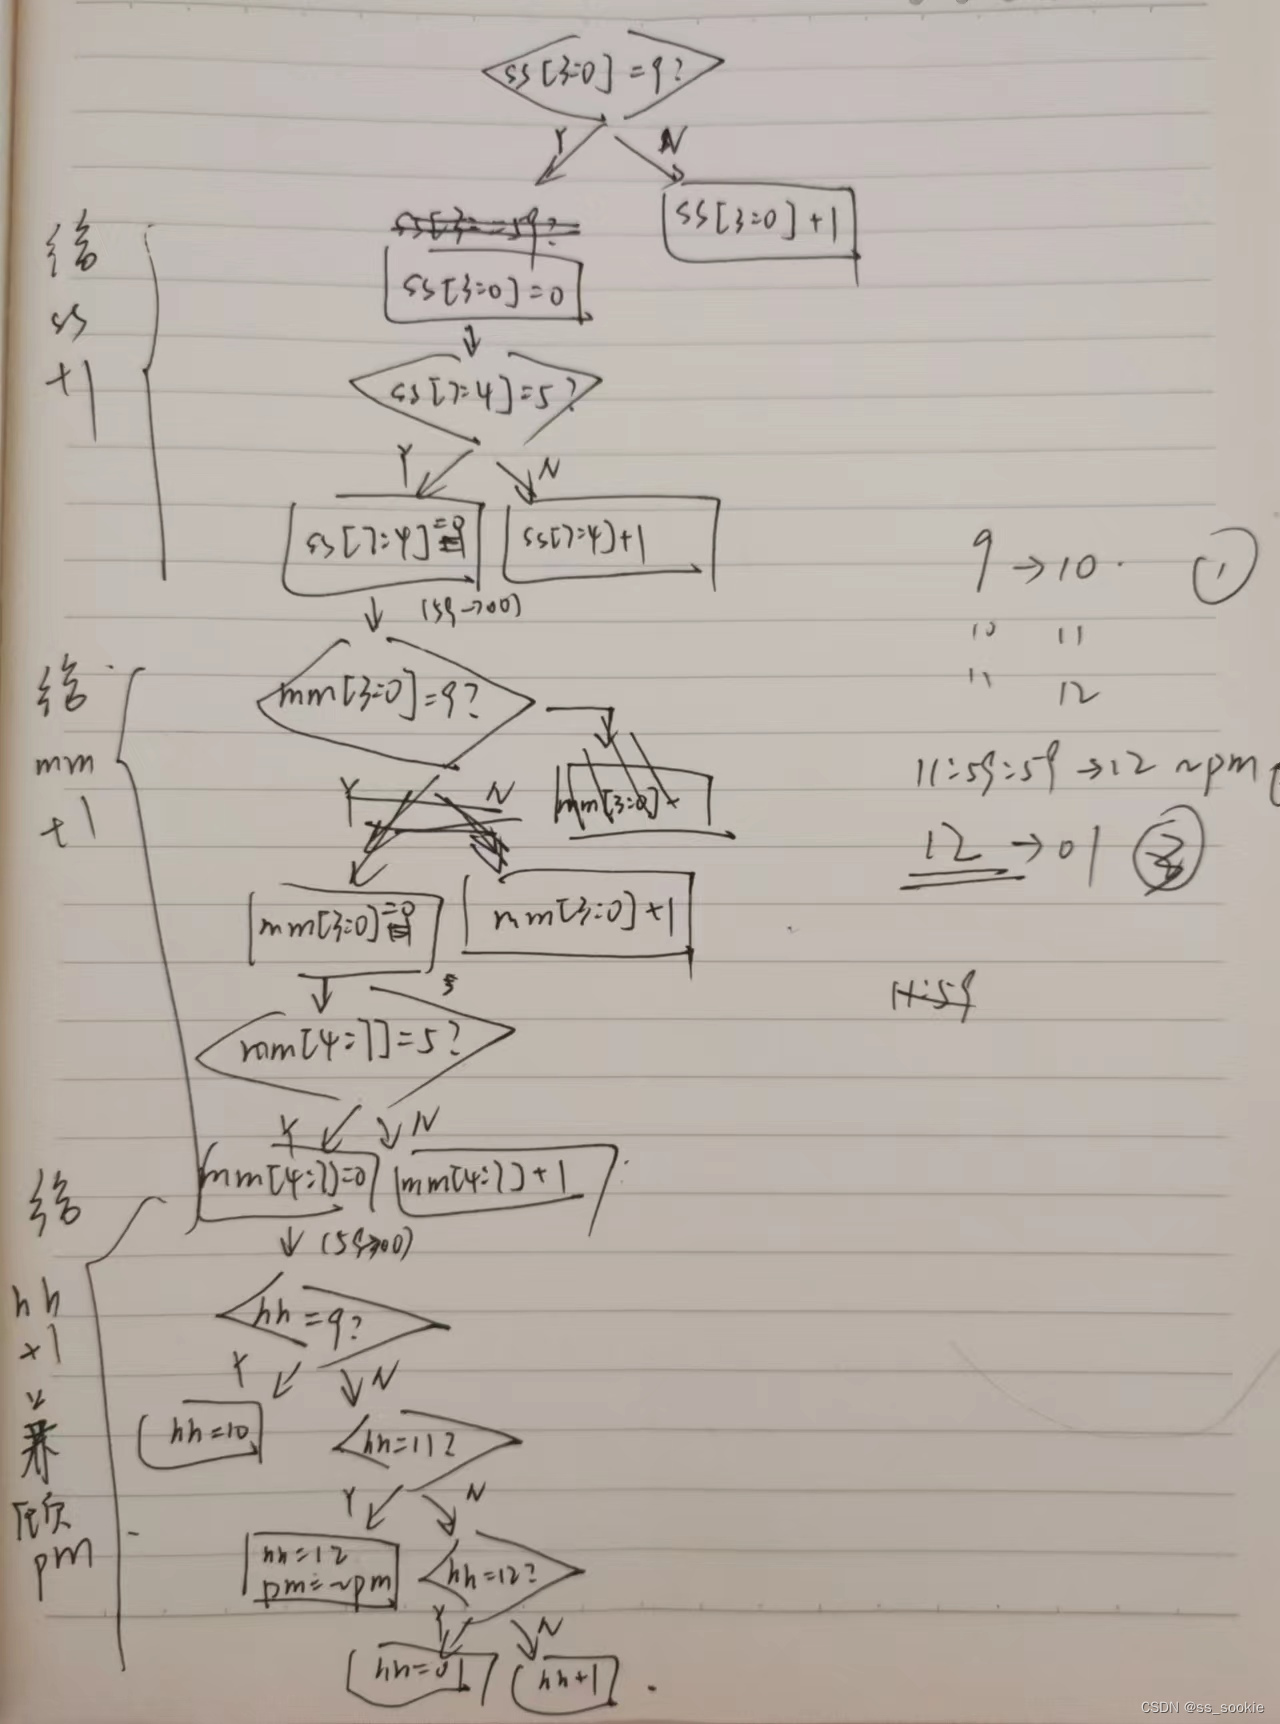 ss[3:0]=9?
Y N
ss[3:0]+1
ss[3:0]=0
ss[7:4]=5?
Y N
ss[7:4]=0
ss[7:4]+1
(59→00)
mm[3:0]=9?
mm[3:0]+
Y N
mm[3:0]=0
mm[3:0]+1
mm[4:7]=5?
Y N
mm[4:7]=0
mm[4:7]+1
(59→00)
hh=9?
Y N
hh=10
hh=11?
Y N
hh=12
pm=~pm
hh=12?
Y N
hh=01
hh+1
给
ss
+1
给
mm
+1
给
hh
+1
pm
9→10
10 11
11 12
11:59:59→12 ~pm
12→01
11:59
CSDN @ss_sookie